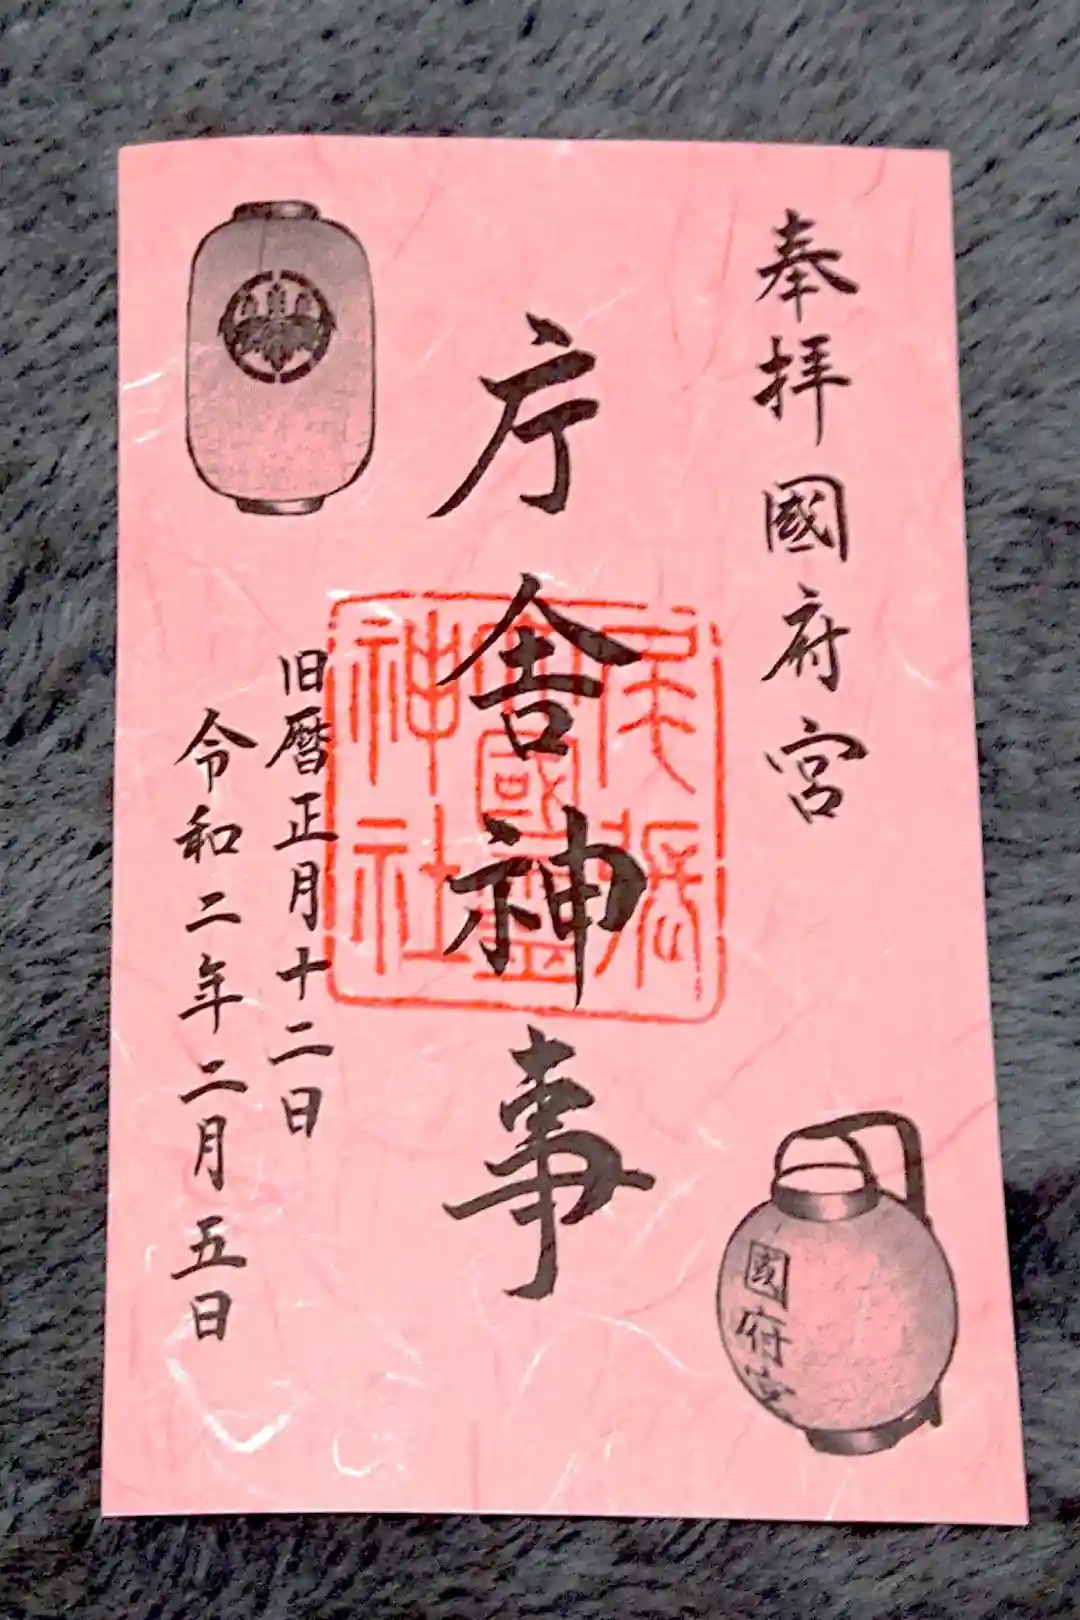 奉拝國府宮
庁舎神事
旧暦正月十二日
令和二年二月五日
尾張
大國霊
神社
國府宮